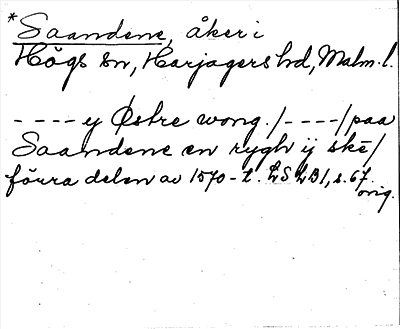 *Saandene, åker i
Högs sn, Harjagers hd, Malm. l.
- - - - y Østre wong. /- - - -/ paa
Saandene en rygh ij skē/
förra delen av 1570-t. LSLB1, s. 67.
orig.